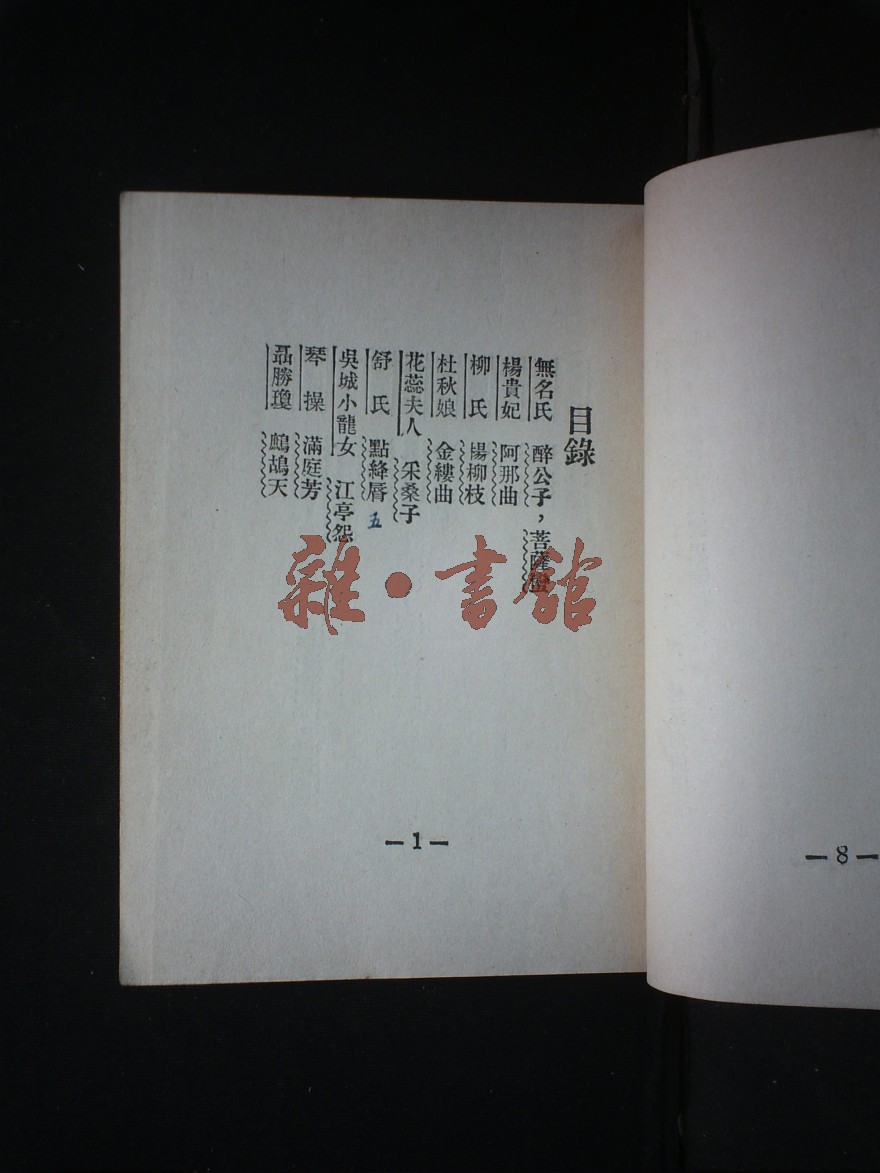 目錄
無名氏 醉公子，菩薩蠻
楊貴妃 阿那曲
柳氏 楊柳枝
杜秋娘 金縷曲
花蕊夫人 采桑子
舒氏 點絳脣 五
吳城小龍女 江亭怨
琴操 滿庭芳
聶勝瓊 鷓鴣天
雜·書館
—1—
—8—